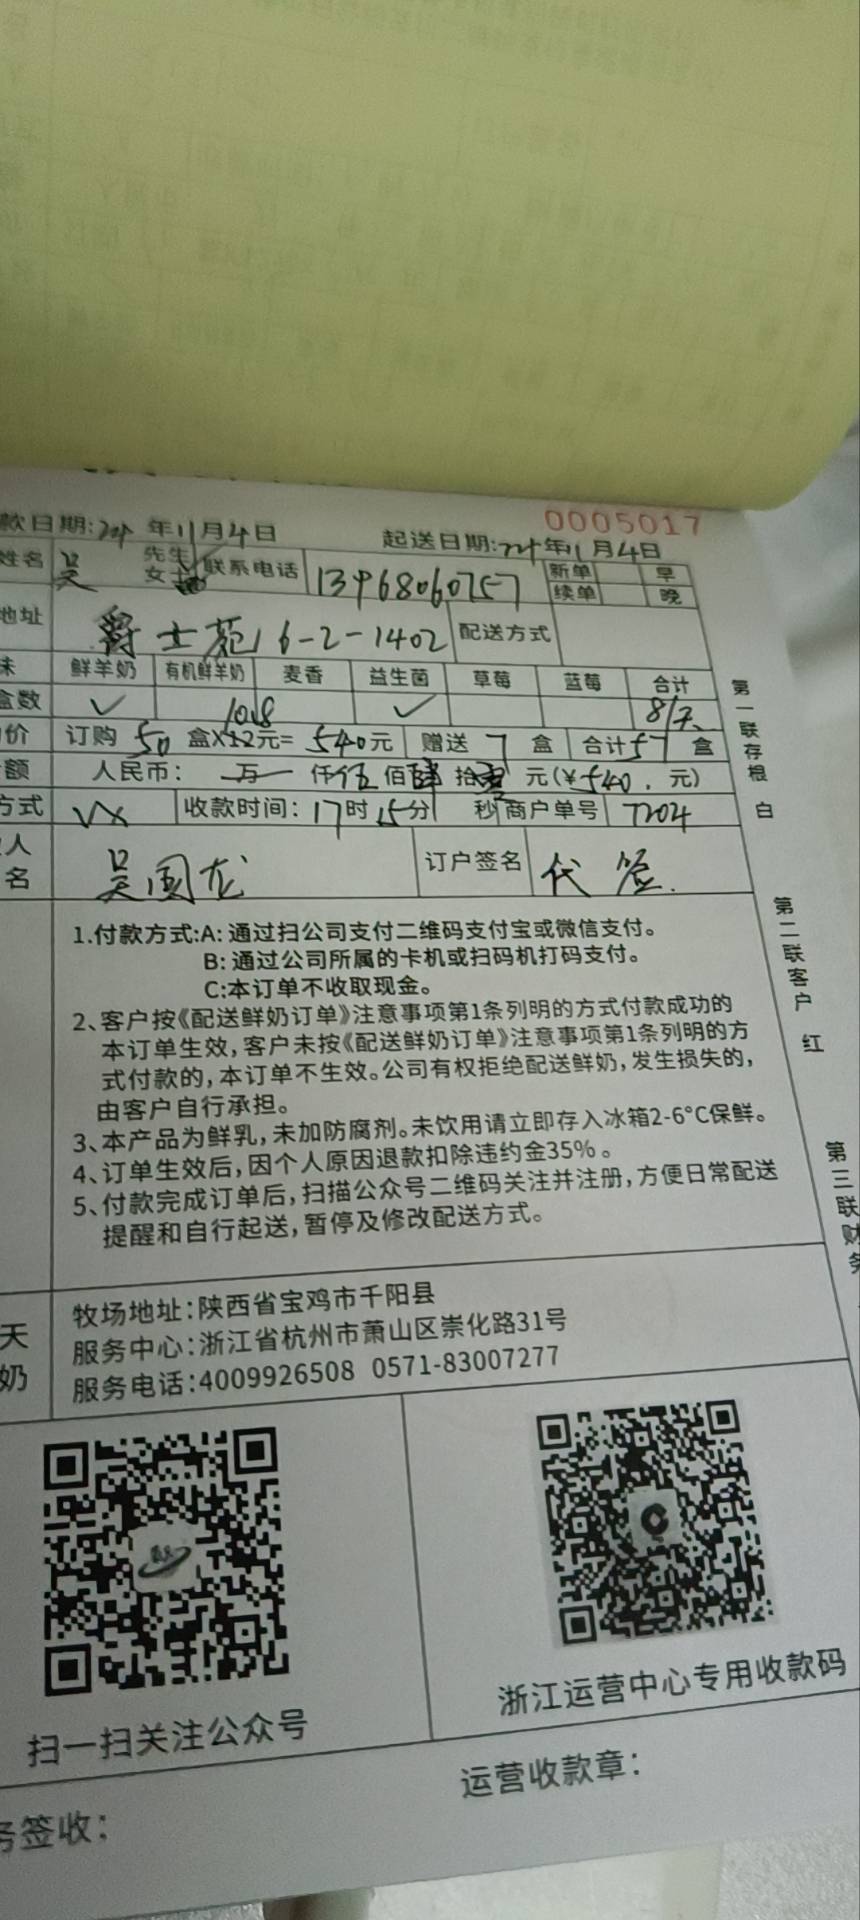 0005017
款日期: 年11月4日 起送日期: 年11月4日
姓名 吴 先生 女士 联系电话 13968060757 新单 早
续单 晚
地址 爵士苑 6-2-1402 配送方式
味 鲜羊奶 有机鲜羊奶 麦香 益生菌 草莓 蓝莓 合计
盒数 ✓ ✓
价 订购 50 盒X12元= 540元 赠送 7 盒 合计57 盒
10.8
额 人民币: 万 仟伍佰肆拾零元(¥540.元)
方式 VX 收款时间: 17时15分 秒 商户单号 7204
人
名 吴国龙 订户签名 代签.
1.付款方式:A: 通过扫公司支付二维码支付宝或微信支付。
B: 通过公司所属的卡机或扫码机打码支付。
C:本订单不收取现金。
2、客户按《配送鲜奶订单》注意事项第1条列明的方式付款成功的
本订单生效,客户未按《配送鲜奶订单》注意事项第1条列明的方
式付款的,本订单不生效。公司有权拒绝配送鲜奶,发生损失的,
由客户自行承担。
3、本产品为鲜乳,未加防腐剂。未饮用请立即存入冰箱2-6°C保鲜。
4、订单生效后,因个人原因退款扣除违约金35%。
5、付款完成订单后,扫描公众号二维码关注并注册,方便日常配送
提醒和自行起送,暂停及修改配送方式。
第一联存根 白
第二联客户 红
第三联财务
天
奶
牧场地址:陕西省宝鸡市千阳县
服务中心:浙江省杭州市萧山区崇化路31号
服务电话:4009926508 0571-83007277
扫一扫关注公众号
浙江运营中心专用收款码
务签收:
运营收款章: